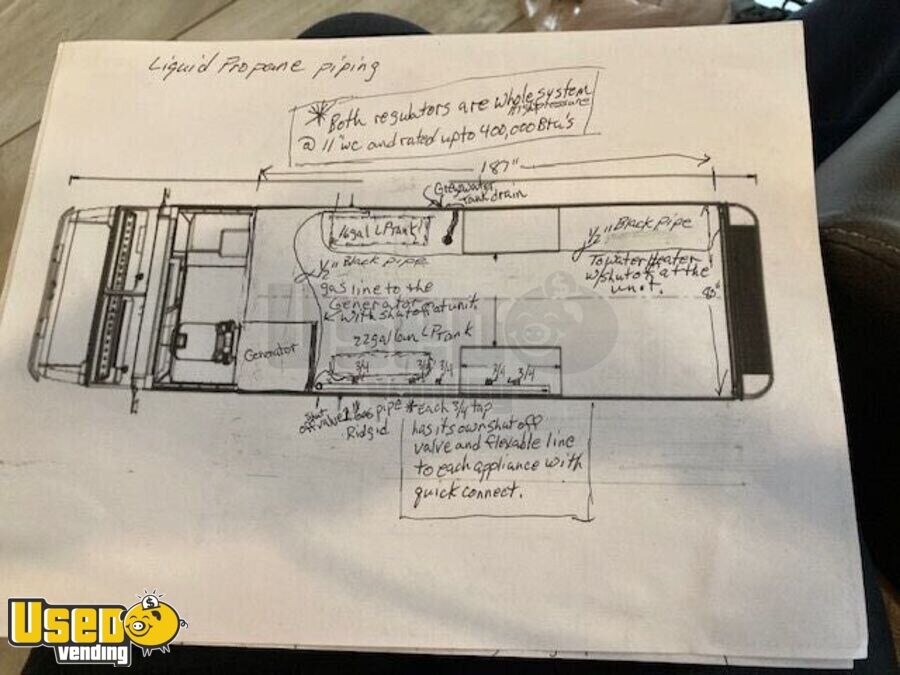 Liquid Propane piping
* Both regulators are whole system
high pressure
@ 11"wc and rated up to 400,000 Btu's
187"
Greywater
Tank drain
16gal LP tank
1/2" Black pipe
1/2" Black pipe
To water Heater
w/shut off at the
unit.
80"
gas line to the
Generator
with shut off at unit
22 gallon LP tank
Generator
3/4 3/4 3/4 3/4 3/4
Shut
off valve
1" Gas pipe
Ridgid
* each 3/4 tap
has its own shut off
valve and flexable line
to each appliance with
quick connect.
Used
vending